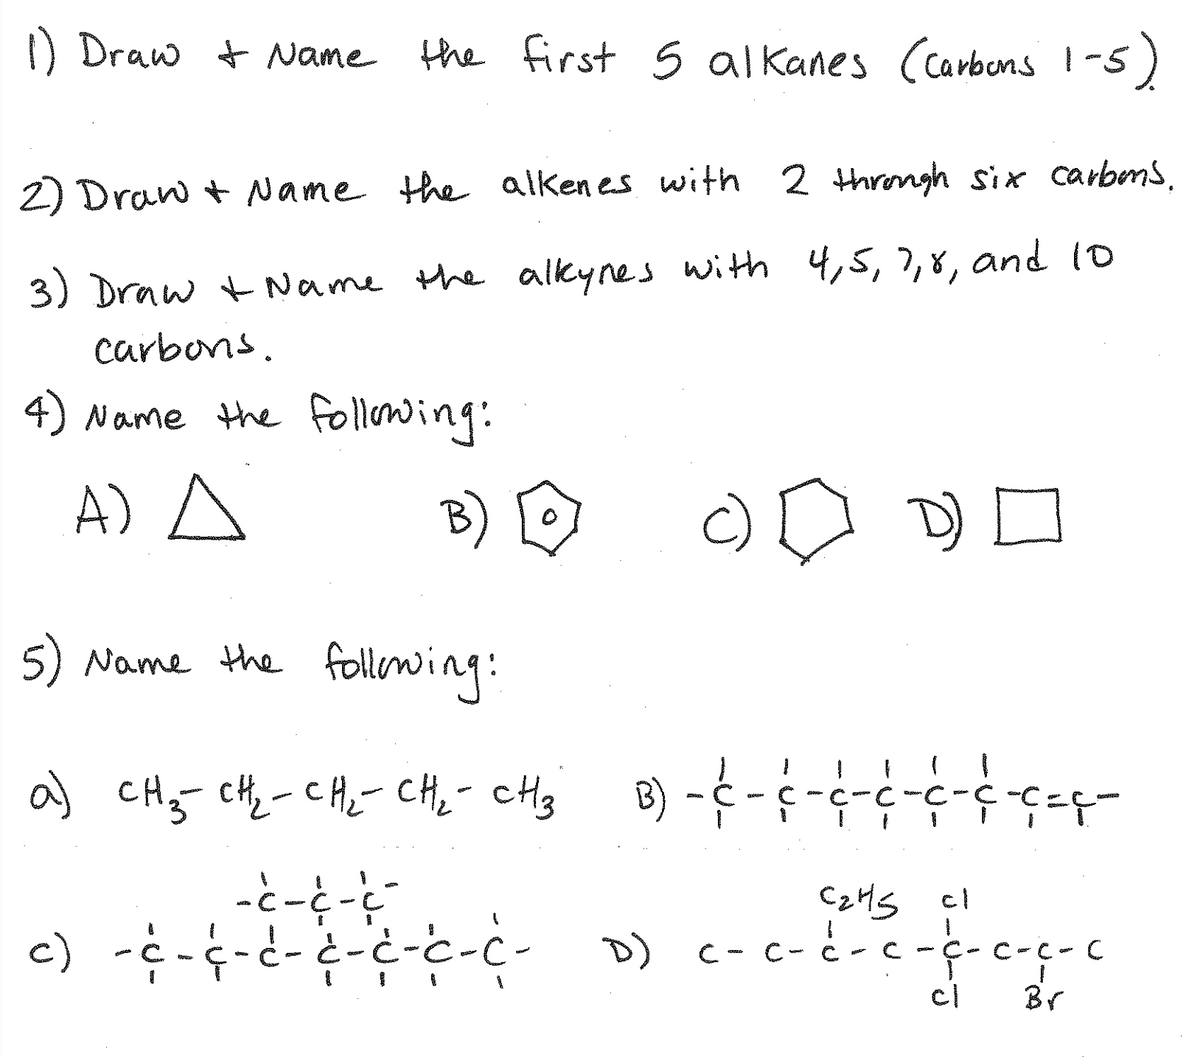 1) Draw + Name the first 5 alkanes (Carbons 1-5).
2) Draw + Name the alkenes with 2 through six carbons.
3) Draw + Name the alkynes with 4,5,7,8, and 10
carbons.
4) Name the following:
A) B) C) D)
5) Name the following:
a) CH₃-CH₂-CH₂-CH₂-CH₃ B) -C-C-C-C-C-C-C=C-
-C-C-C-
C₂H₅ Cl
C) -C-C-C-C-C-C-C- D) C-C-C-C-C-C-C-C
Cl Br